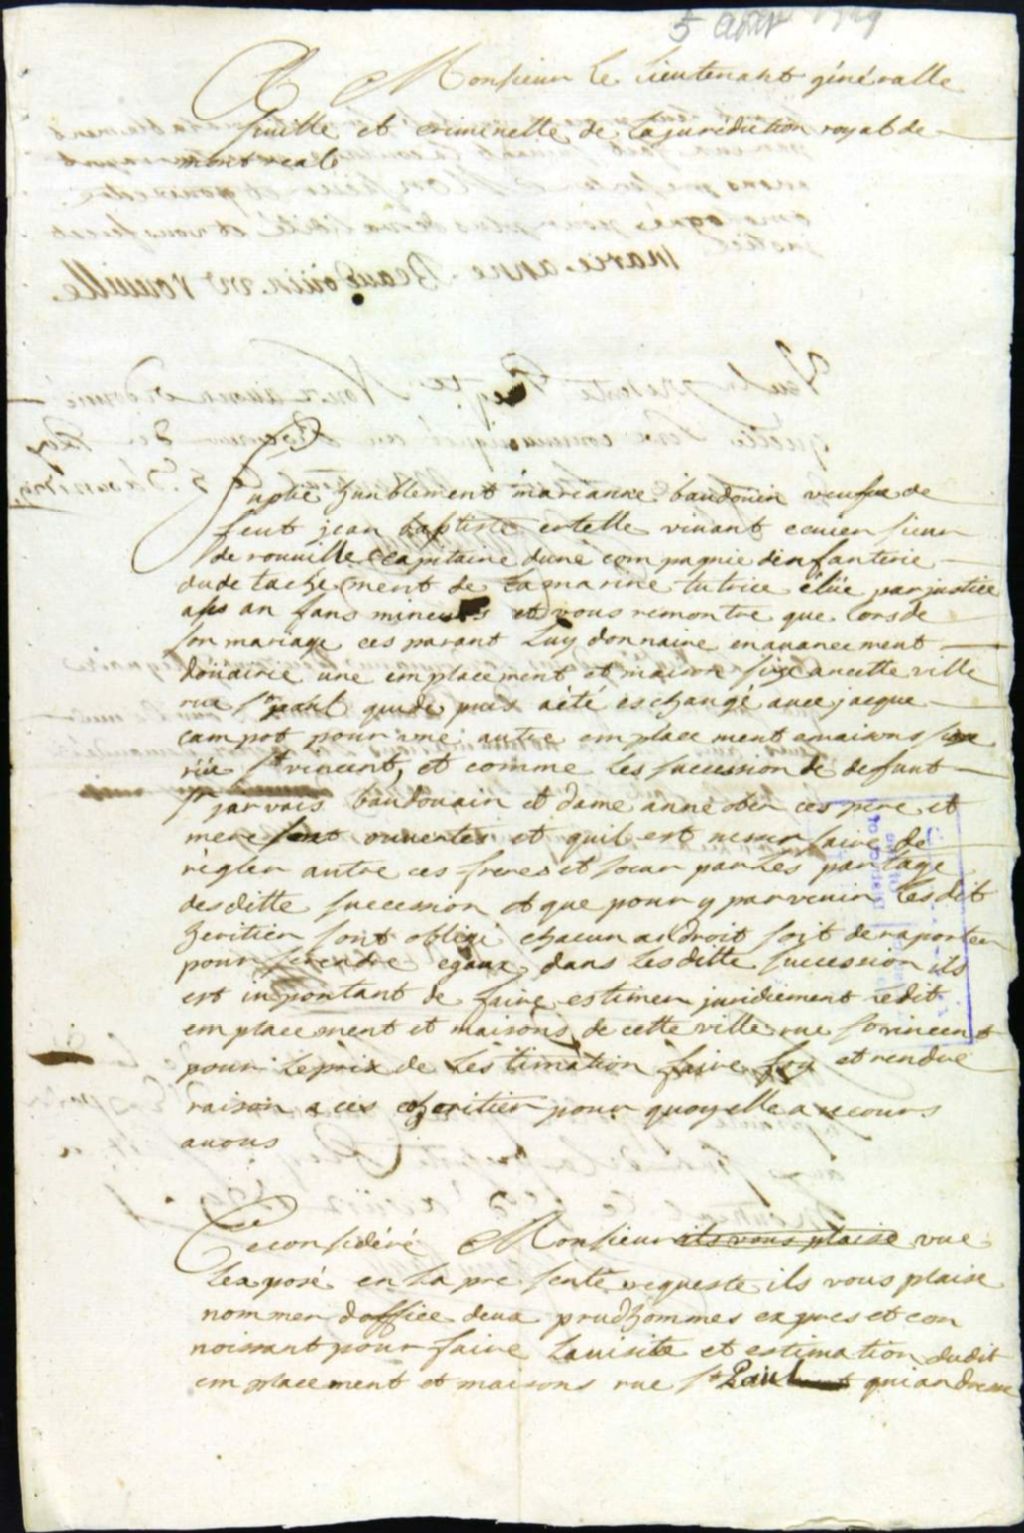 5 aout 1729
A Monsieur le lieutenant généralle
siville et criminelle de la juridiction royal de
montreale
Suplie humblement marianne baudouin veufve de
feut jean baptiste ertelle vivant ecuier sieur
de rouville capitaine dune compagnie dinfanterie
du detachement de la marine tutrice élüe par justice
a ses an fans mineurs et vous remontre que lors de
son mariage ces parant luy donnaire en avancement
doüairie une emplacement et maison size an cette ville
rue st paul qui de puis a été eschangé avec jacque
campot pour une autre emplacement emaisons size
rüe st vincent, et comme les sucession de defunt
sr jarvais baudouain et dame anne ober ces pere et
mere sont ouvertes et quil est nessessaire de
règler autre ces freres et soeur par les partage
desditte succession et que pour y parvenir lesdit
heritier sont obligé chacun an droit soit de raporter
pour se rendre egaux dans lesditte succession ils
est inportant de faire estimer juridicment ledit
emplacement et maisons de cette ville rue st vincent
pour le prix de lestimation faire foy et rendre
raison a ces coheritier pour quoy elle a recours
a vous
Ce considéré Monsieur ils vous plaise vue
lexposé en la presente requeste ils vous plaise
nommer doffice deux prudhommes expres et con
noissant pour faire la visite et estimation dudit
emplacement et maisons rue st Paul qui an dresse